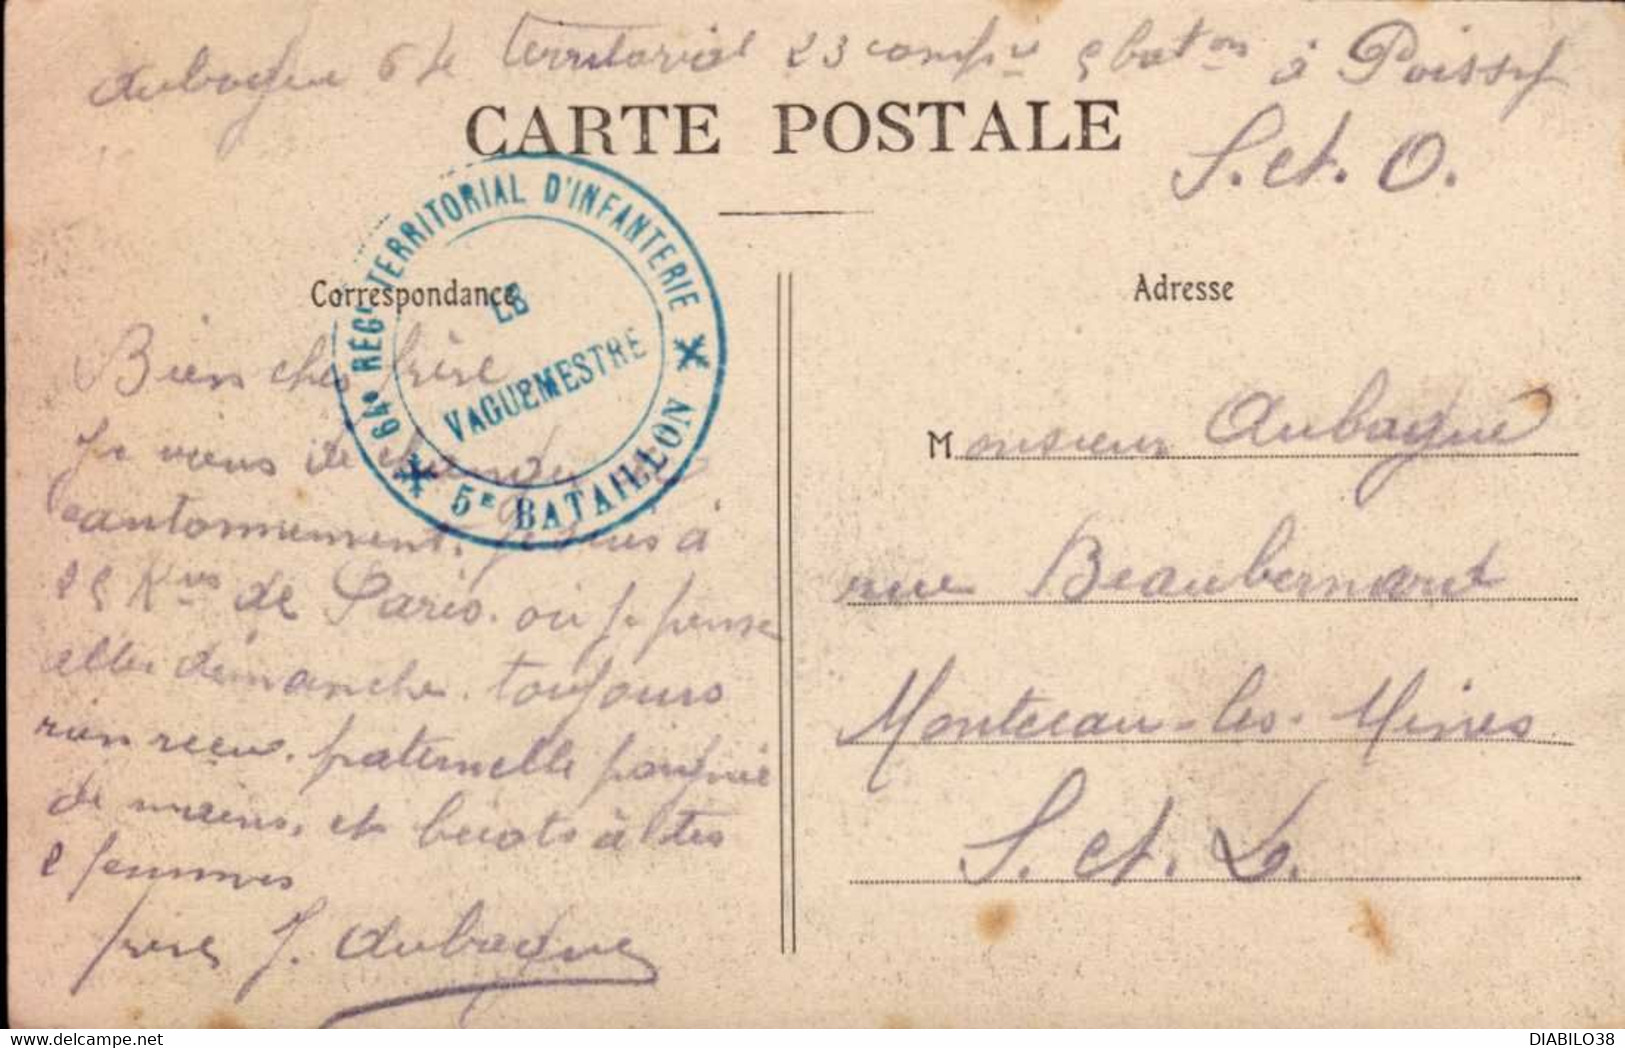 Aubague 64e territorial 23 compie 5 baton à Poissy
S. et. O.
CARTE POSTALE
64e RÉGt TERRITORIAL D'INFANTERIE
LE
VAGUEMESTRE
5e BATAILLON
Correspondance
Bien cher frère
Je viens de changer de
cantonnement. Je suis à
25 Kms de Paris. où je pense
aller dimanche. toujours
rien reçu. fraternelle poignée
de mains, et becots à tes
2 femmes
frère J. Aubague
Adresse
Monsieur Aubague
rue Beaubernard
Montceau-les-Mines
S. et. L.
DIABILO38